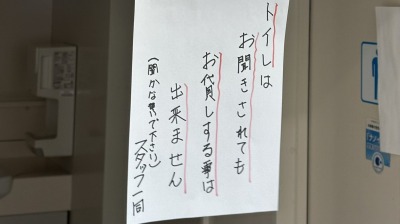 トイレは
お聞きされても
お貸しする事は
出来ません
(聞かな居で下さい)
スタッフ一同